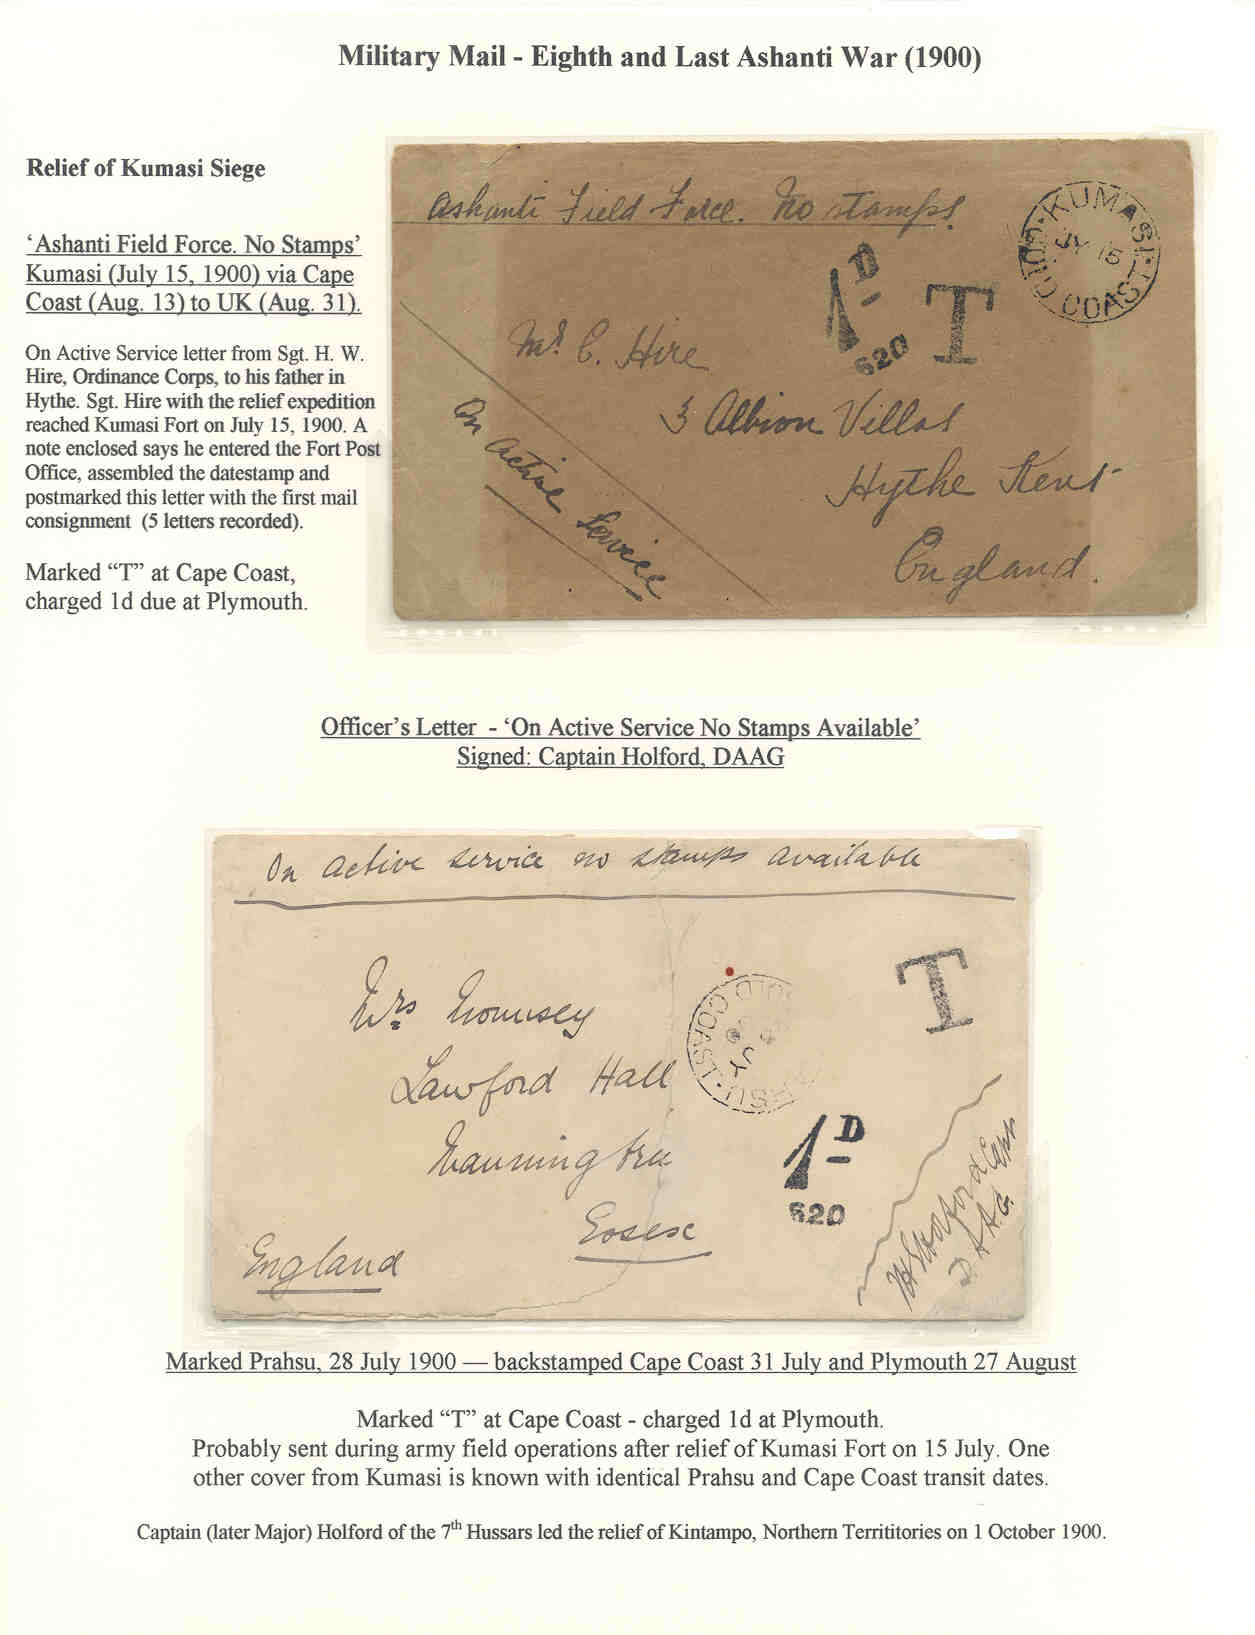 Military Mail - Eighth and Last Ashanti War (1900)
Relief of Kumasi Siege
‘Ashanti Field Force. No Stamps’
Kumasi (July 15, 1900) via Cape
Coast (Aug. 13) to UK (Aug. 31).
On Active Service letter from Sgt. H. W.
Hire, Ordinance Corps, to his father in
Hythe. Sgt. Hire with the relief expedition
reached Kumasi Fort on July 15, 1900. A
note enclosed says he entered the Fort Post
Office, assembled the datestamp and
postmarked this letter with the first mail
consignment (5 letters recorded).
Marked “T” at Cape Coast,
charged 1d due at Plymouth.
Ashanti Field Force. No stamps.
KUMASI
JY 15
GOLD COAST
1D
620
T
Mr. C. Hire
3 Albion Villas
Hythe Kent
England.
On Active Service
Officer’s Letter - ‘On Active Service No Stamps Available’
Signed: Captain Holford, DAAG
On active service no stamps available
T
Mrs
Lawford Hall
Manningtree
Essex
England
GOLD COAST
JY
RSU
1D
620
Holford Capt
D.A.A.G.
Marked Prahsu, 28 July 1900 — backstamped Cape Coast 31 July and Plymouth 27 August
Marked “T” at Cape Coast - charged 1d at Plymouth.
Probably sent during army field operations after relief of Kumasi Fort on 15 July. One
other cover from Kumasi is known with identical Prahsu and Cape Coast transit dates.
Captain (later Major) Holford of the 7th Hussars led the relief of Kintampo, Northern Territitories on 1 October 1900.